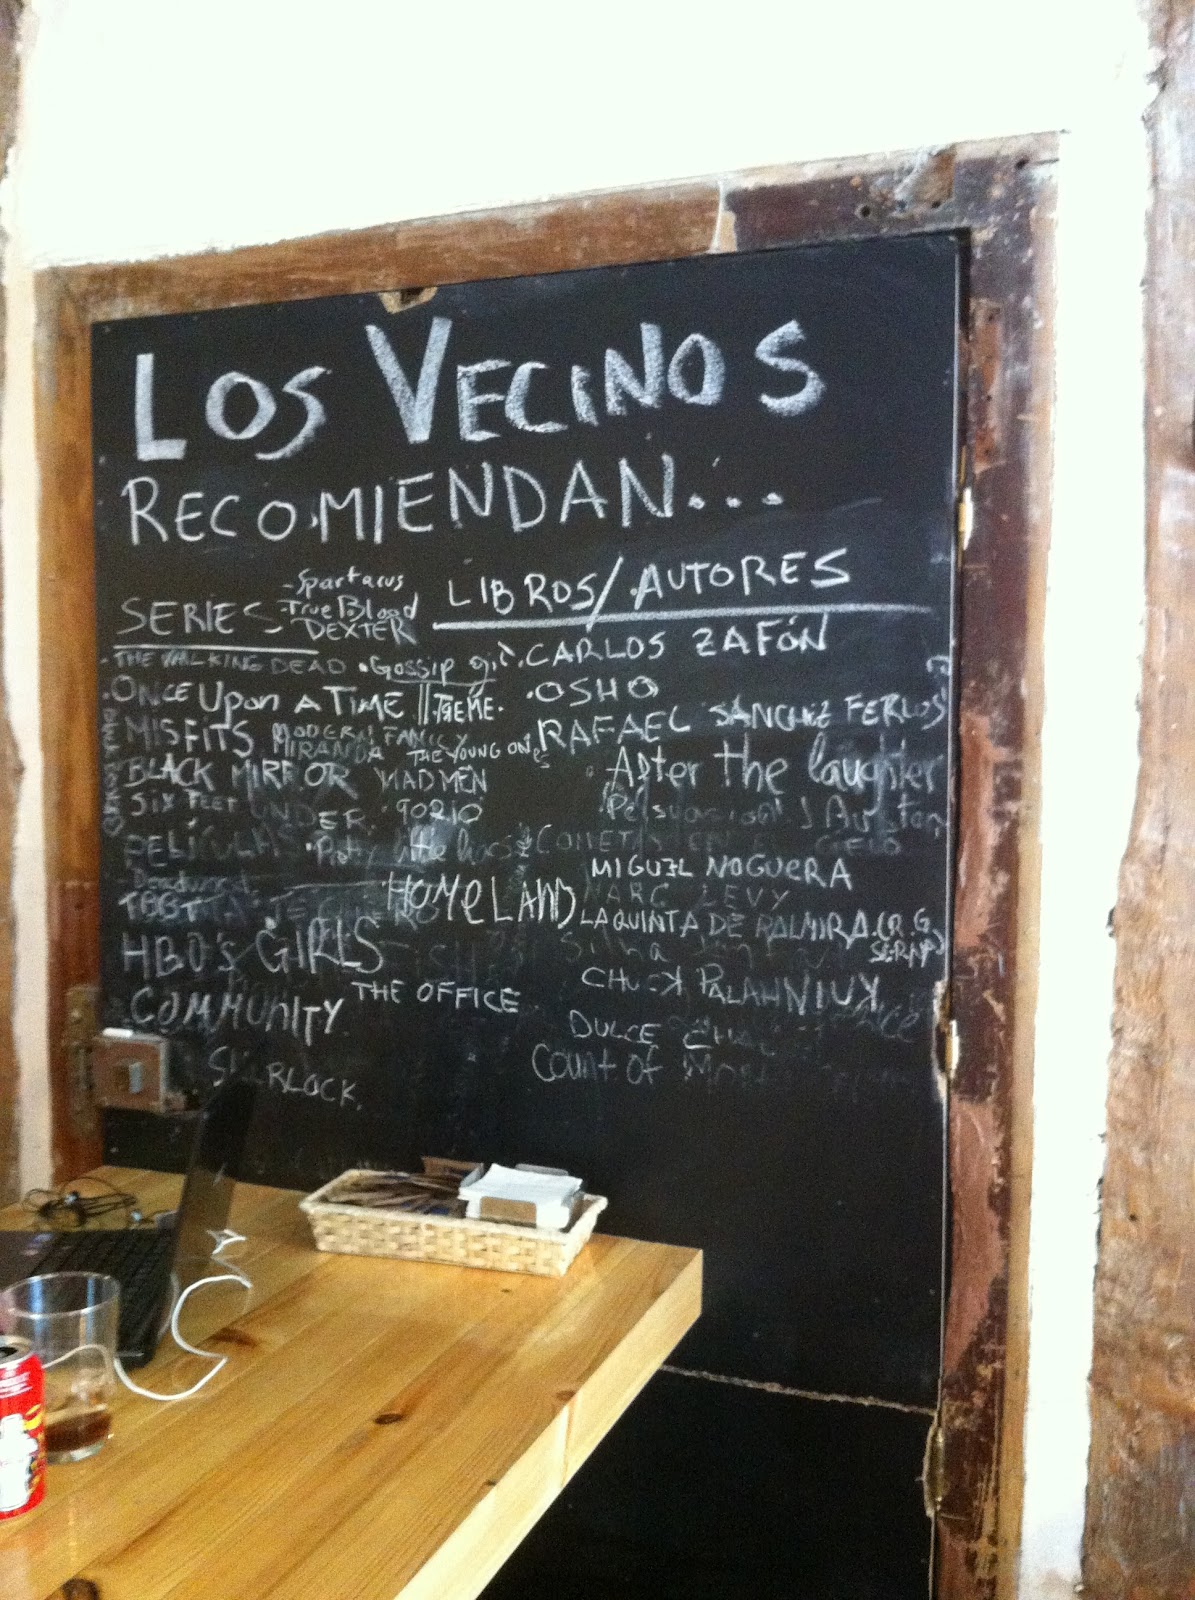 LOS VECINOS
RECOMIENDAN...
SERIES
-Spartacus
-True Blood
DEXTER
·THE WALKING DEAD ·Gossip girl
·ONCE UPON A TIME || TREME·
MISFITS MODERN FAMILY
MIRANDA THE YOUNG ONES
BLACK MIRROR MAD MEN
SIX FEET UNDER. 90210
PELÍCULAS ·Pretty little liars
Deadwood.
HOMELAND
HBO'S GIRLS
COMMUNITY THE OFFICE
SHERLOCK.
LIBROS/AUTORES
·CARLOS ZAFÓN
·OSHO
RAFAEL SÁNCHEZ FERLOSIO
·After the laughter
Persuasion J Austen
COMETAS EN EL CIELO
MIGUEL NOGUERA
MARC LEVY
LA QUINTA DE PALMIRA. (R. G. SERNA)
CHUCK PALAHNIUK
DULCE
Count of